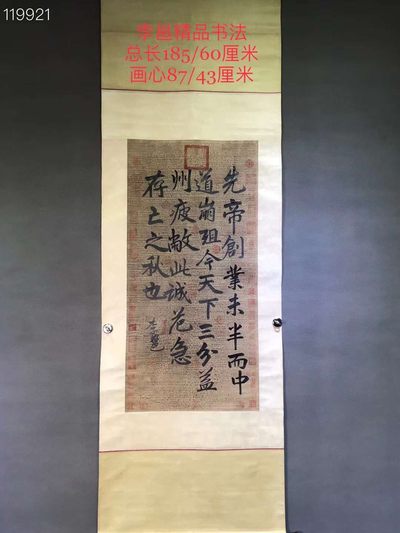 119921
李邕精品书法
总长185/60厘米
画心87/43厘米
先帝創業未半而中
道崩殂今天下三分益
州疲敝此誠危急
存亡之秋也
李邕